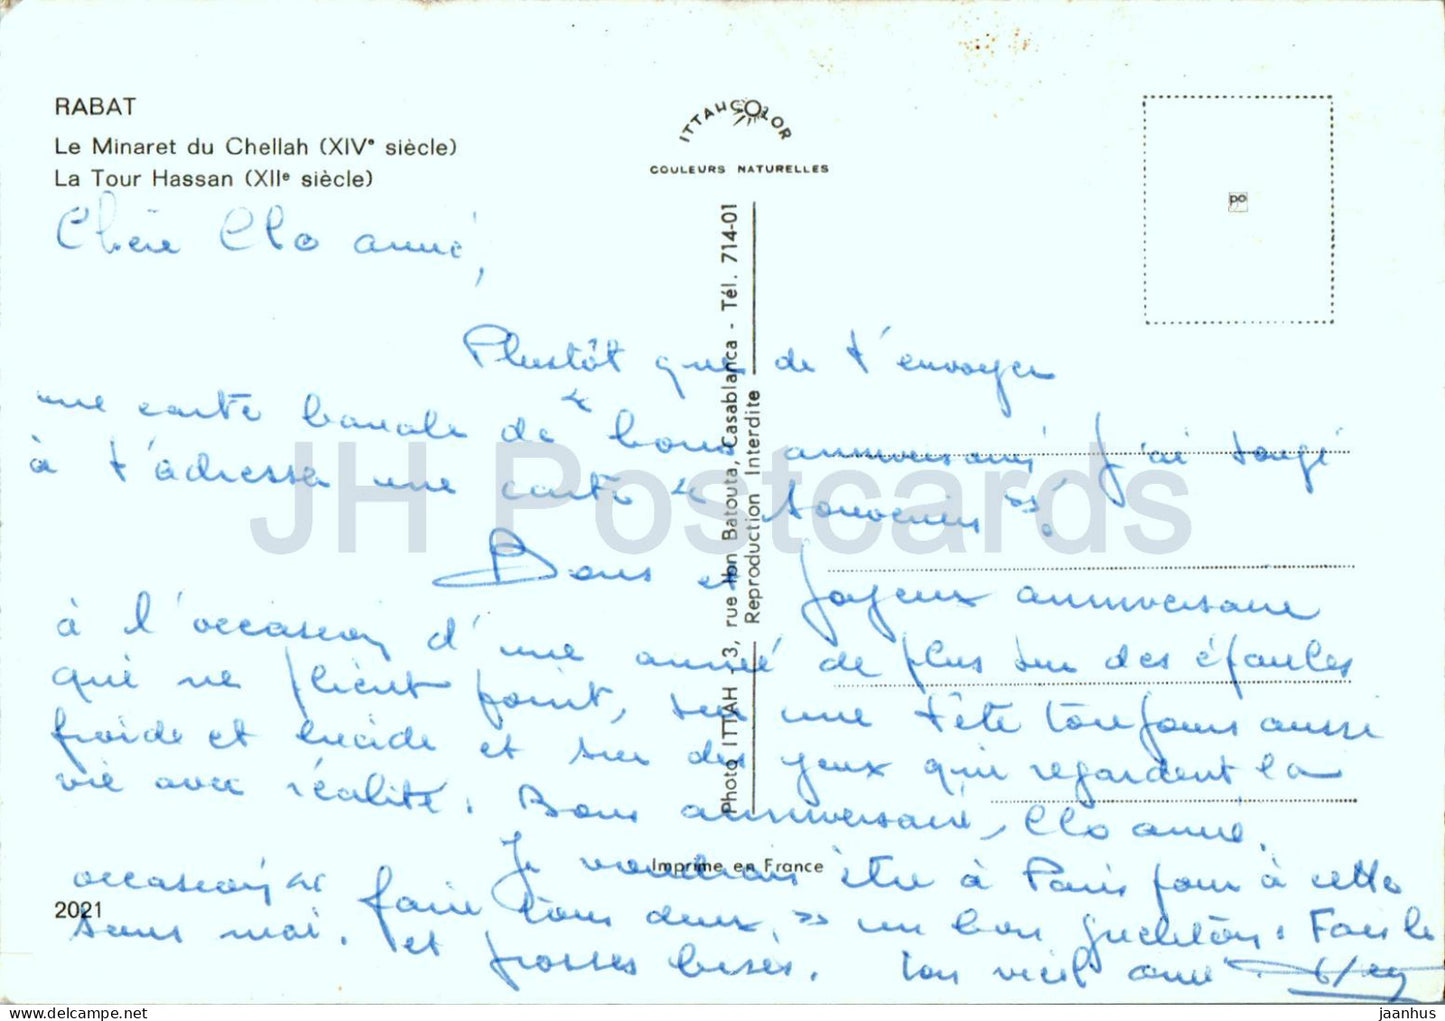 RABAT
Le Minaret du Chellah (XIVe siècle)
La Tour Hassan (XIIe siècle)
ITTAHCOLOR
COULEURS NATURELLES
po
Chère Clo amie,
Plustôt que de t'envoyer
une carte banale de « bons anniversaire j'ai songé
à t'adresser une carte « souvenir »!
Bons et joyeux anniversaire
à l'occasion d'une année de plus sur des épaules
qui ne plient point, sur une tête toujours aussi
froide et lucide et sur des yeux qui regardent la
vie avec réalité. Bons anniversaire, Clo amie.
Je voudrais être à Paris pour à cette
occasion « faire tous deux » un bon gueleton. Fais le
sans moi. et grosses bises. Ton vieil ami
Photo ITTAH - 3, rue Ibn Batouta, Casablanca - Tél. 714-01
Reproduction Interdite
Imprimé en France
2021
JH Postcards
delcampe.net
jaanhus